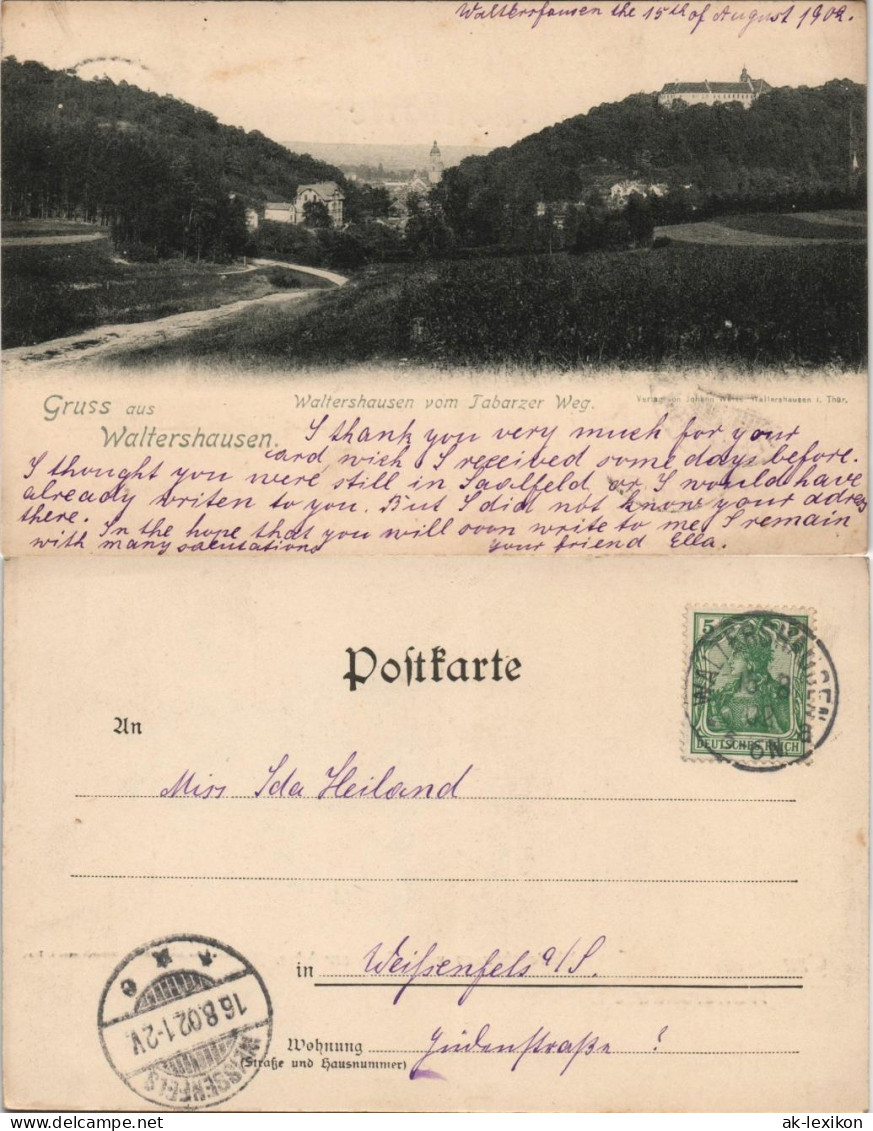 Waltershausen the 15th of August 1902.
Gruss aus
Waltershausen.
Waltershausen vom Tabarzer Weg.
Waltershausen i. Thür.
I thank you very much for your
card wich I received some days before.
I thought you were still in Saalfeld or I would have
already writen to you. But I did not know your adress
there. In the hope that you will soon write to me I remain
with many salutations your friend Ella.
Postkarte
5
DEUTSCHES REICH
WALTERSHAUSEN
An
Miss Ida Heiland
in Weißenfels a/S.
Wohnung Jüdenstraße ?
(Straße und Hausnummer)
16.8.02.1-2V.
WEISSENFELS
ak-lexikon.com